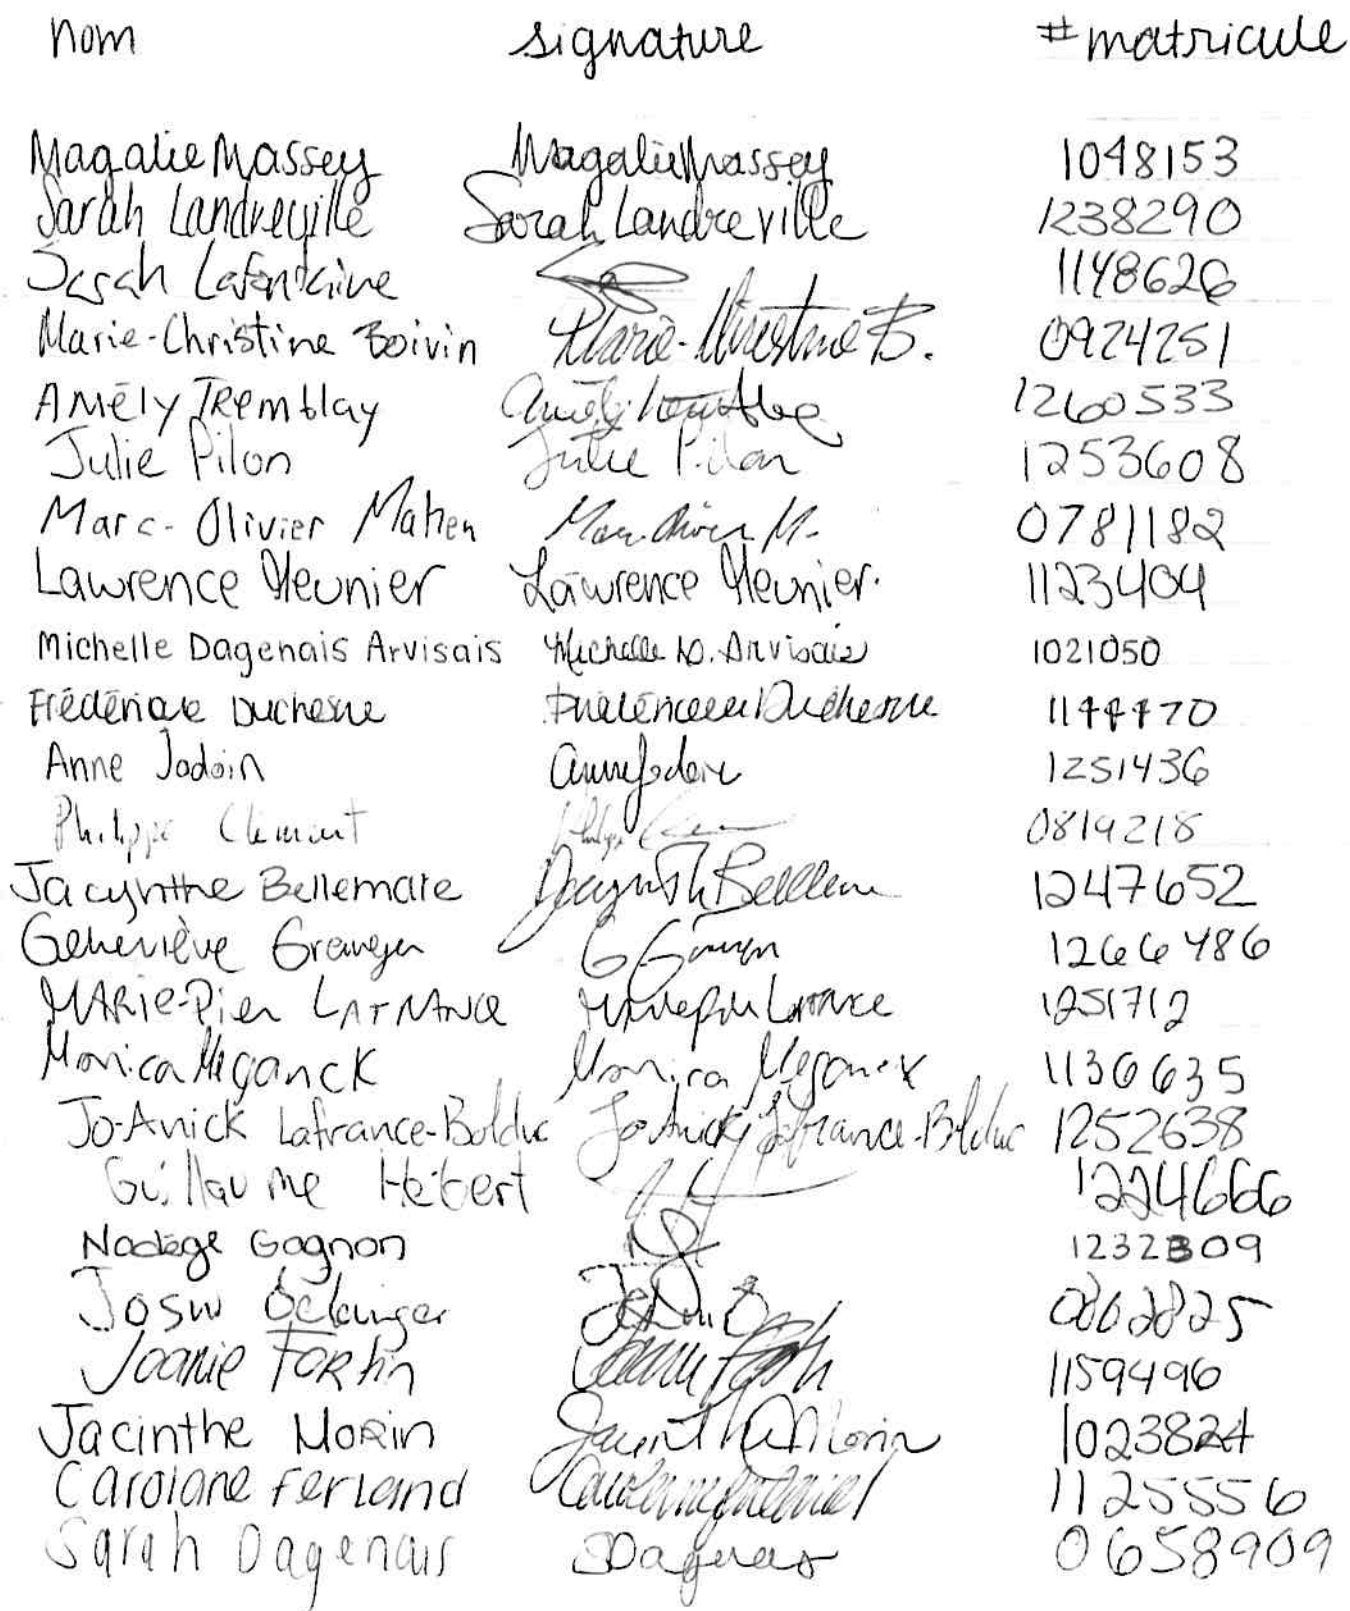 nom signature #matricule
Magalie Massey Magalie Massey 1048153
Sarah Landreville Sarah Landreville 1238290
Sarah Lafontaine 1148626
Marie-Christine Boivin Marie-Christine B. 0924251
Amély Tremblay 1260533
Julie Pilon Julie Pilon 1253608
Marc-Olivier Maheu Marc-Olivier M. 0781182
Lawrence Meunier Lawrence Meunier. 1123404
Michelle Dagenais Arvisais Michelle D. Arvisais 1021050
Frédérique Duchesne Duchesne
Anne Jodoin Anne Jodoin 1251436
Philippe Clément 0819218
Jacynthe Bellemare 1247652
Geneviève Granger G Granger 1266486
MARie-Pier LAFRANCE 1251712
Monica Meganck Monica Meganck 1136635
Jo-Anick Lafrance-Bolduc Jo-Anick Lafrance-Bolduc 1252638
Guillaume Hébert 1224666
Nadège Gagnon 1232309
Bélanger
Joanie Fortin 1159496
Jacinthe Morin Jacinthe Morin 1023824
Carolane Ferland 1125556
Sarah Dagenais SDagenais 0658909